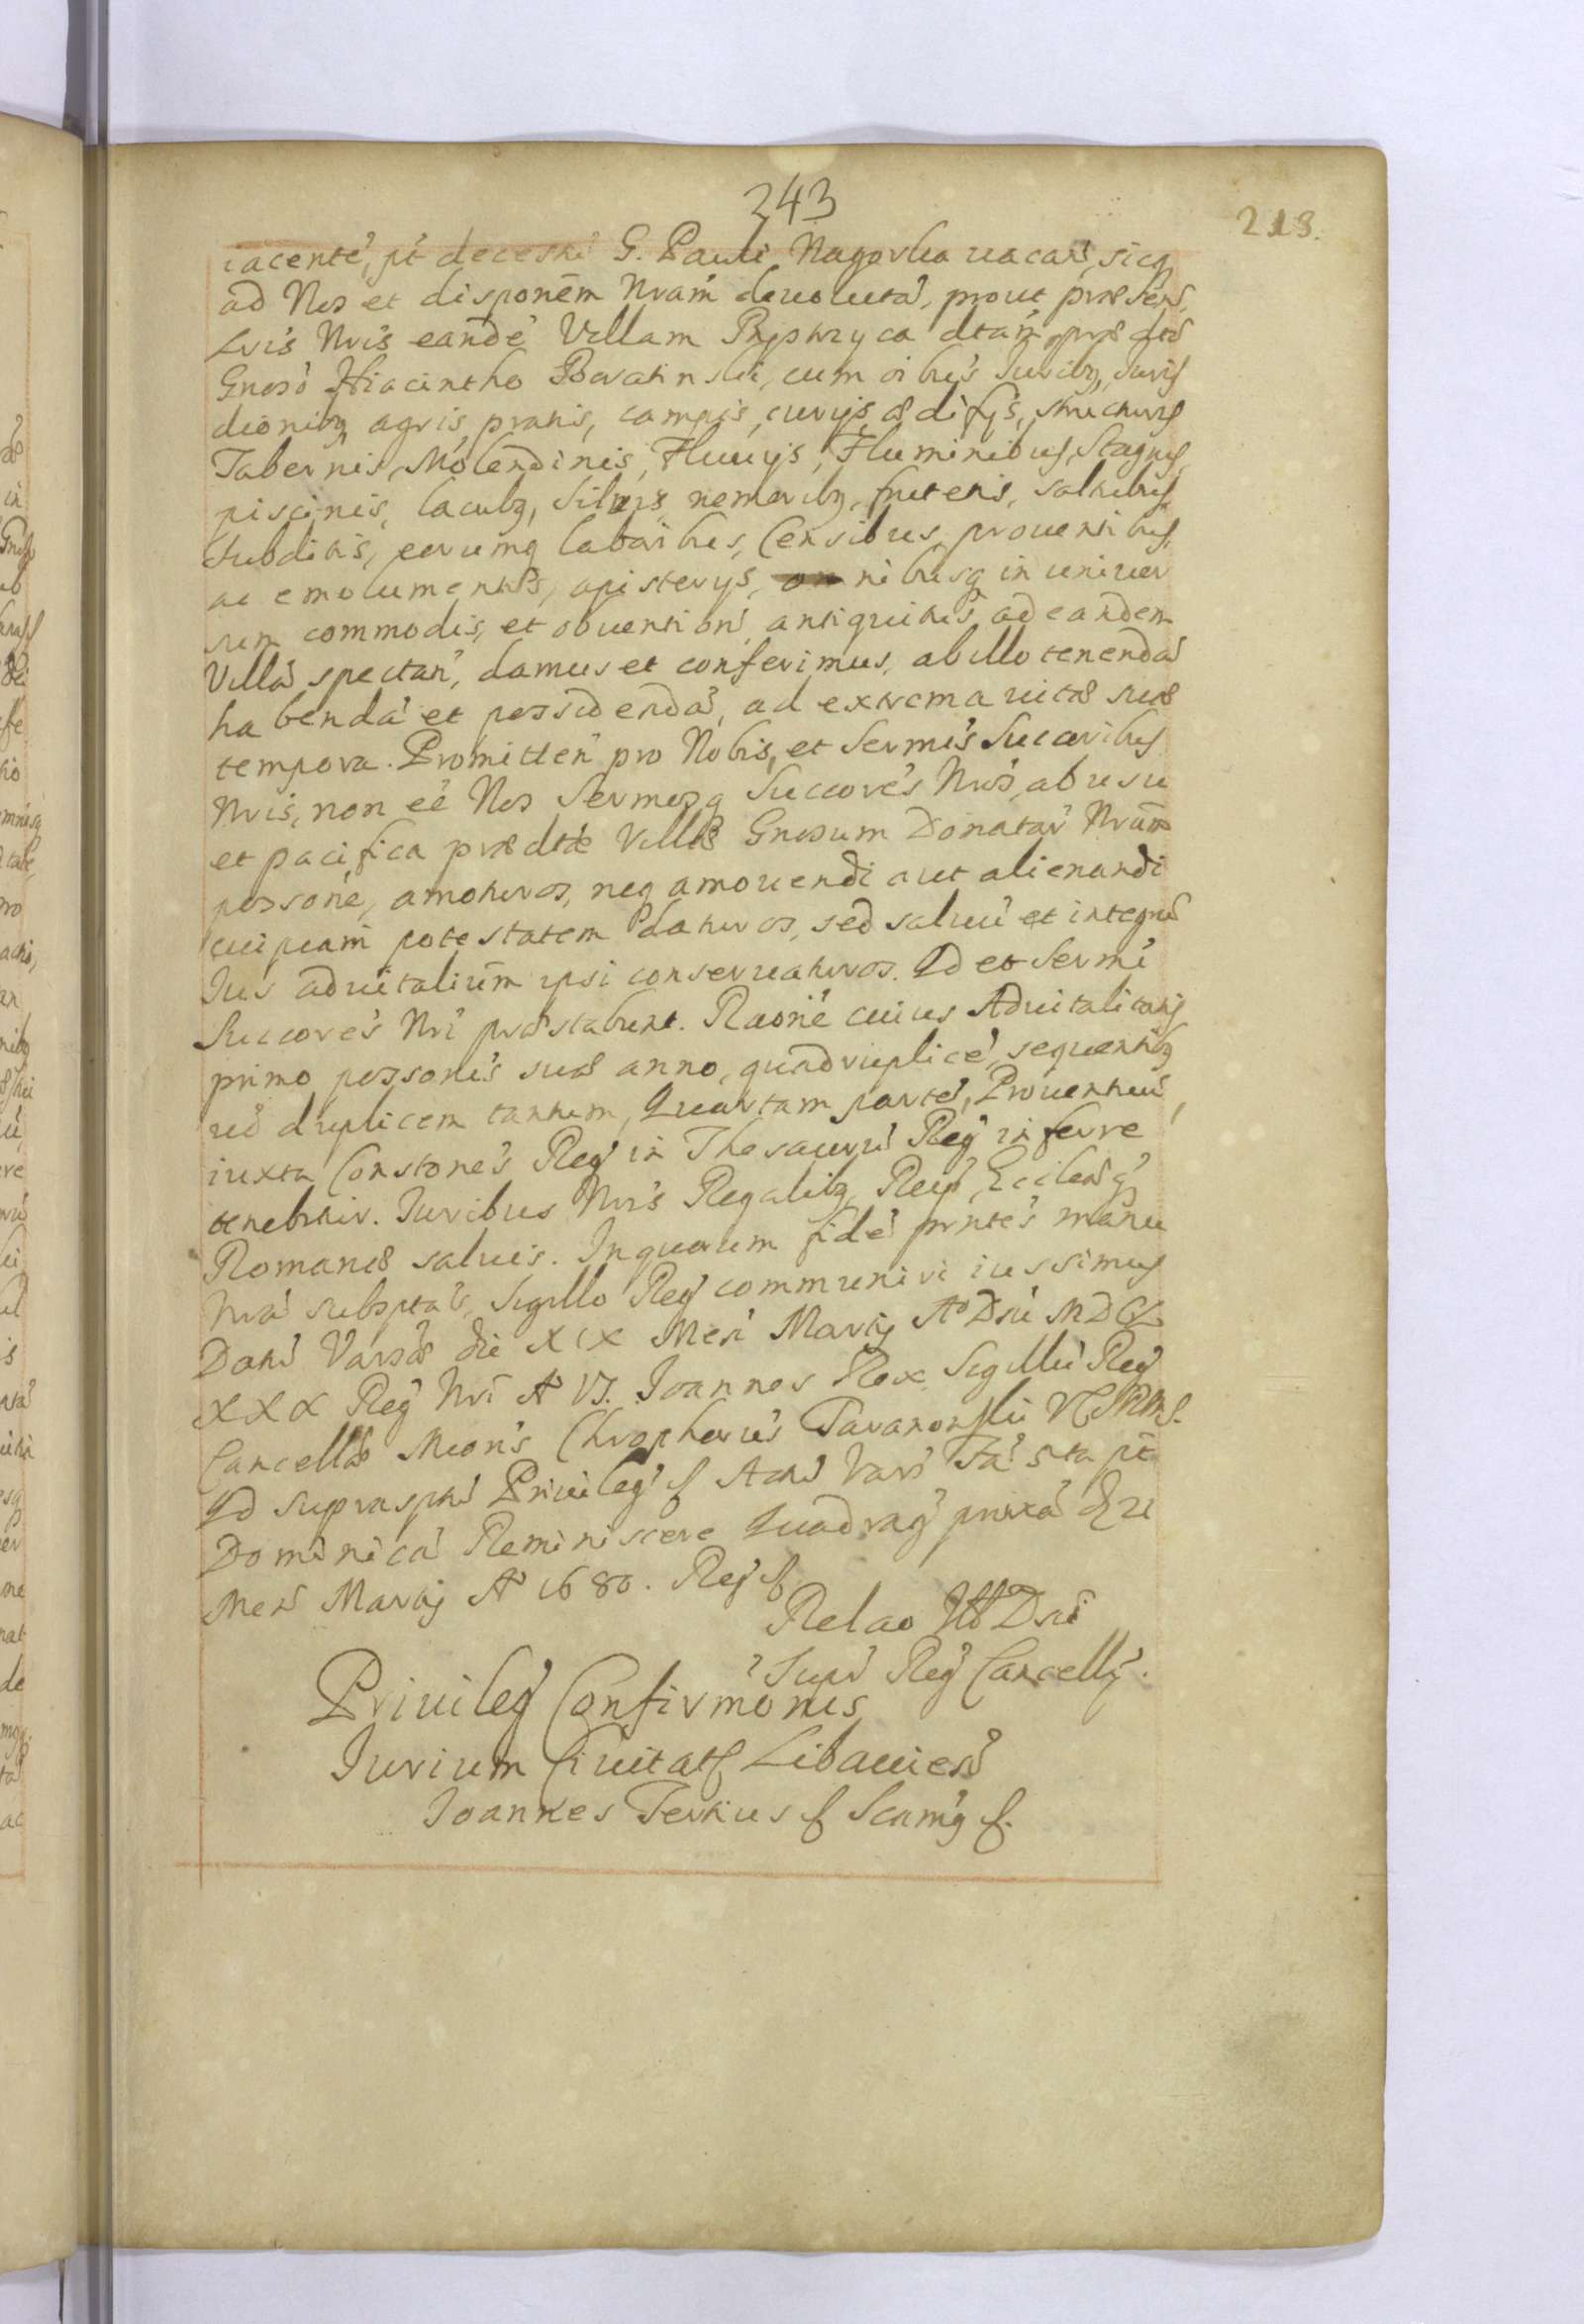 243
218.
iacentē, pt decessū G. Pauli Nagorka uacan̄, sicq
ad Nos et disponēm Nram̄ deuolutā, prout præsen̄.
Lris Nris eandē Villam dtam, prædto
Gnoso Hiacintho Boratinski, cum oibus Iuribq, Iuris
dionibq agris, pratis, campis, curijs, ædifijs, structuris
Tabernis, Molendinis, Fluuijs, Fluminibus, Stagnis,
piscinis, lacubq, siluis, nemoribq, frutetis, saltibus,
Subditis, eorumq laboribus, Censibus, prouentibus,
ac emolumentis, apisterijs, omnibusq in uniuer
sum commodis, et obuention̄, antiquitus ad eandem
Villā spectan̄, damus et conferimus, ab illo tenendā
habendā et possidendā, ad extrema uitæ suæ
tempora. Promitten̄ pro Nobis, et Sermis Succoribus
Nris, non eē Nos Sermosq Succorēs Nros, ab usu
et pacifica prædtæ Villæ Gnosum Donatar̄ Nrum
possonē, amoturos, neq amouendi aut alienandi
cuipiam potestatem daturos, sed saluū et integrū
Ius aduitalium ipsi conseruaturos. Qd et Sermi
Succorēs Nri præstabunt. Raonē cuius Aduitalitatis
primo possonis suæ anno, quadruplicē, sequentibq
uero duplicem tantum, Quartam partē, Prouentuū,
iuxta Constonēs Regni in Thesaurū Regni inferre
tenebitur. Iuribus Nris Regalibq, Reip, Ecclæq
Romanæ saluis. In quorum fidē pntēs manu
Nra subsptas, Sigillo Regni communiri iussimus
Datū Varsæ die XIX Mens Martij Ao Dni MDC
XXX Regni Nri Ao VI. Ioannes Rex. Sigillū Regni
Cancellæ Meoris Chrophorus
Qd suprasptū Priuilegī Actū Vars Fa 5ta pt
Dominicā Reminiscere Quadrag prima
Mens Martij Ao 1680. Regni
Relao Dni
Supr Regni Cancellrij.
Priuileg Confirmonis
Iurium Ciuitatis Libauien̄
Ioannes Tertius